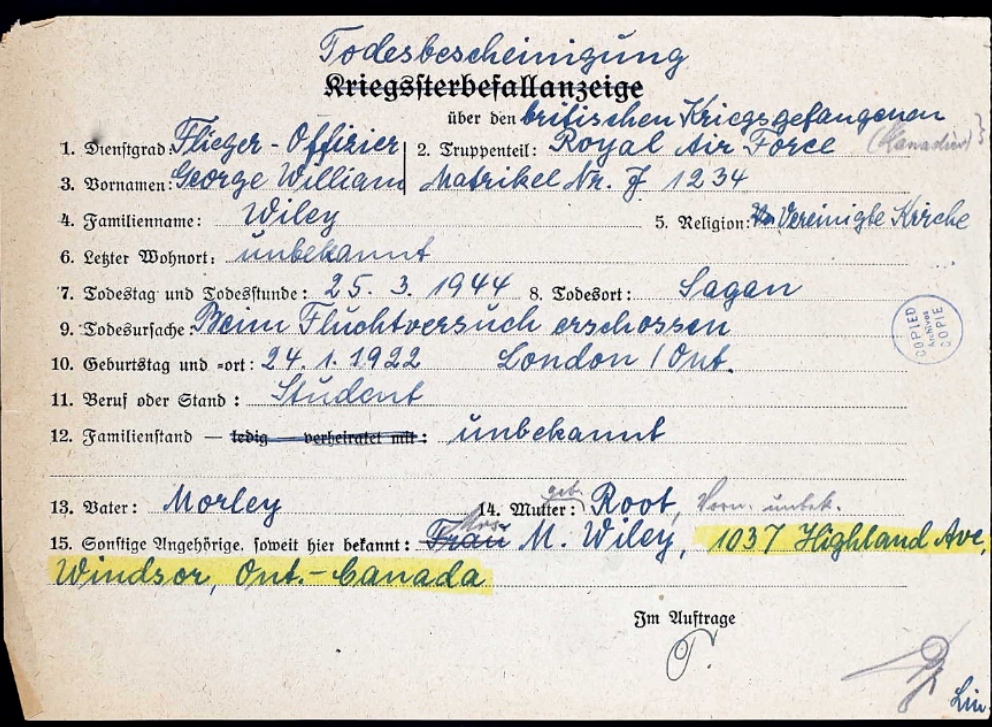 Todesbescheinigung
Kriegssterbefallanzeige
über den britischen Kriegsgefangenen
1. Dienstgrad: Flieger-Offizier 2. Truppenteil: Royal Air Force (Kanadier)
3. Vornamen: George William Matrikel Nr. J 1234
4. Familienname: Wiley 5. Religion: Vereinigte Kirche
6. Letzter Wohnort: unbekannt
7. Todestag und Todesstunde: 25. 3. 1944 8. Todesort: Sagan
9. Todesursache: Beim Fluchtversuch erschossen
10. Geburtstag und =ort: 24. 1. 1922 London / Ont.
11. Beruf oder Stand: Student
12. Familienstand — ledig — verheiratet mit: unbekannt
13. Vater: Morley 14. Mutter: geb. Root, Vorn. unbek.
15. Sonstige Angehörige, soweit hier bekannt: Frau Mrs. M. Wiley, 1037 Highland Ave,
Windsor, Ont.-Canada
Im Auftrage
COPIED
Archives
COPIE